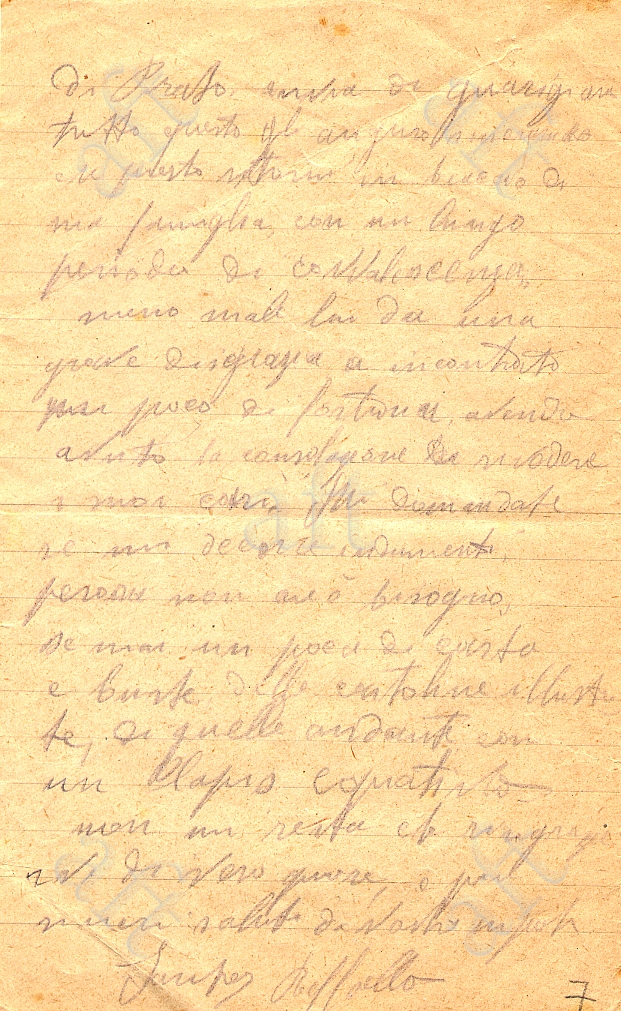 di Prato. ansia di guarigione
tutto questo gli auguro
che presto ritorni in braccio di
mia famiglia, con un lungo
periodo di convalescenza,
meno male lui da una
grave disgrazia a incontrato
un poco di fortuna, avendo
avuto la consolazione di rivedere
i suoi cari. Mi domandate
se mi decorre indumenti,
non ne ò bisogno,
se mai un poco di carta
e buste delle cartoline illustra
te, di quelle andante con
un lapis copiativo
non mi resta che ringrazia
vi di vero quore, e poi
saluti da vostro nipote
Raffaello
7